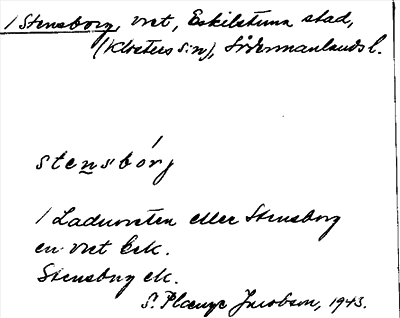 / Stensborg, vret, Eskilstuna stad,
(Klosters s:n), Södermanlands l.
stensbórg
/ Laduvreten eller Stensborg
en vret Eek.
Stensbrg ek.
S. Plænge Jacobson, 1943.